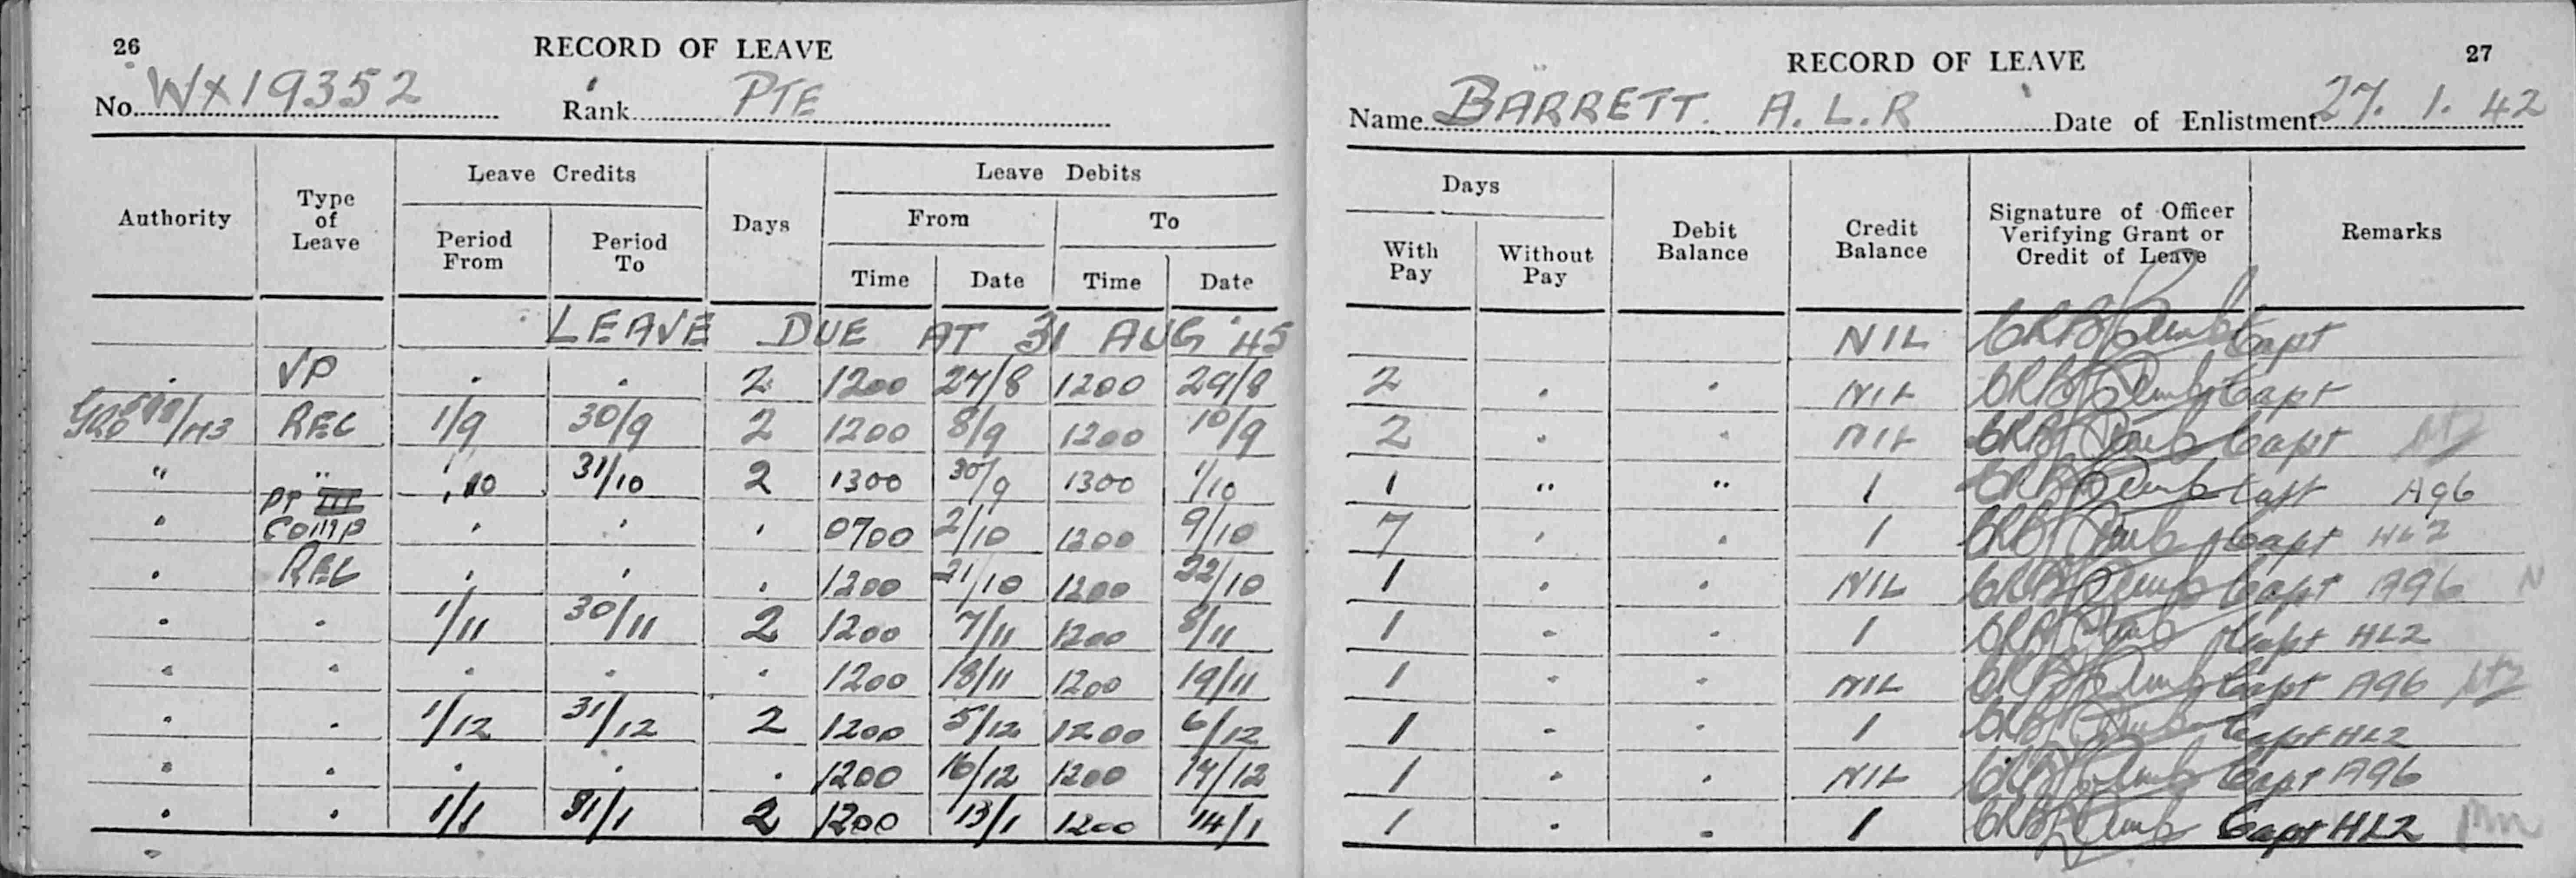 26 RECORD OF LEAVE
No. WX19352 Rank PTE
Authority Type of Leave Leave Credits Period From Period To Days Leave Debits From Time Date To Time Date
LEAVE DUE AT 31 AUG '45
VP 2 1200 27/8 1200 29/8
GRO /43 REC 1/9 30/9 2 1200 8/9 1200 10/9
" " 10 31/10 2 1300 30/9 1300 1/10
PT COMP 0700 2/10 1200 9/10
REC 1200 21/10 1200 22/10
1/11 30/11 2 1200 7/11 1200 8/11
1200 18/11 1200 19/11
1/12 31/12 2 1200 5/12 1200 6/12
1200 16/12 1200 17/12
1/1 31/1 2 1200 13/1 1200 14/1
RECORD OF LEAVE 27
Name BARRETT. A. L. R Date of Enlistment 27. 1. 42
Days With Pay Without Pay Debit Balance Credit Balance Signature of Officer Verifying Grant or Credit of Leave Remarks
NIL Capt
2 NIL Capt
2 NIL Capt
1 " " 1 Capt A96
7 1 Capt HL2
1 NIL Capt A96
1 1 Capt HL2
1 NIL Capt A96
1 1 Capt HL2
1 NIL Capt A96
1 1 Capt HL2